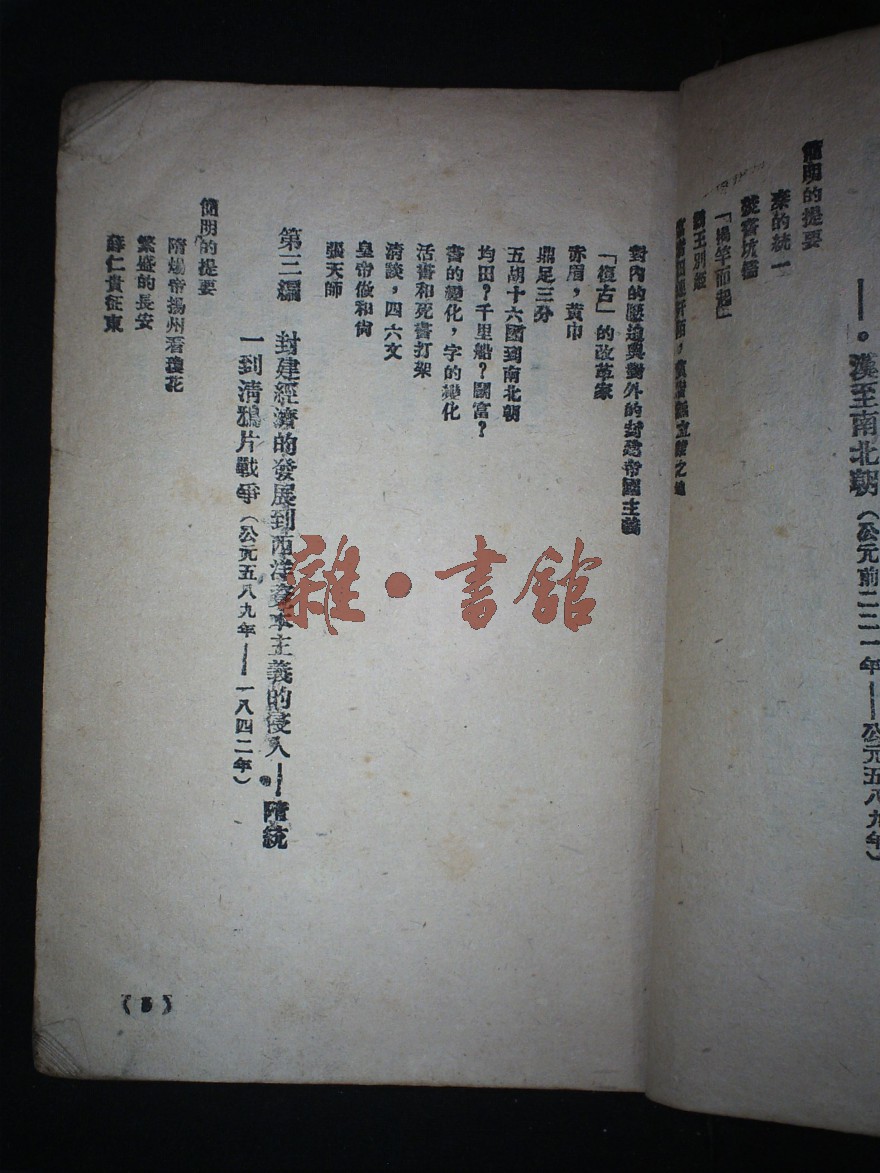 ——漢至南北朝(公元前二二一年——公元五八九年)
簡明的提要
秦的統一
焚書坑儒
「揭竿而起」
霸王別姬
對內的壓迫與對外的封建帝國主義
「復古」的改革家
赤眉,黃巾
鼎足三分
五胡十六國到南北朝
均田?千里船?鬭富?
書的變化,字的變化
活書和死書打架
清談,四六文
皇帝做和尙
張天師
第三編 封建經濟的發展到西洋資本主義的侵入——隋統
一到淸鴉片戰爭(公元五八九年——一八四二年)
簡明的提要
隋煬帝揚州看瓊花
繁盛的長安
薛仁貴征東
雜·書館